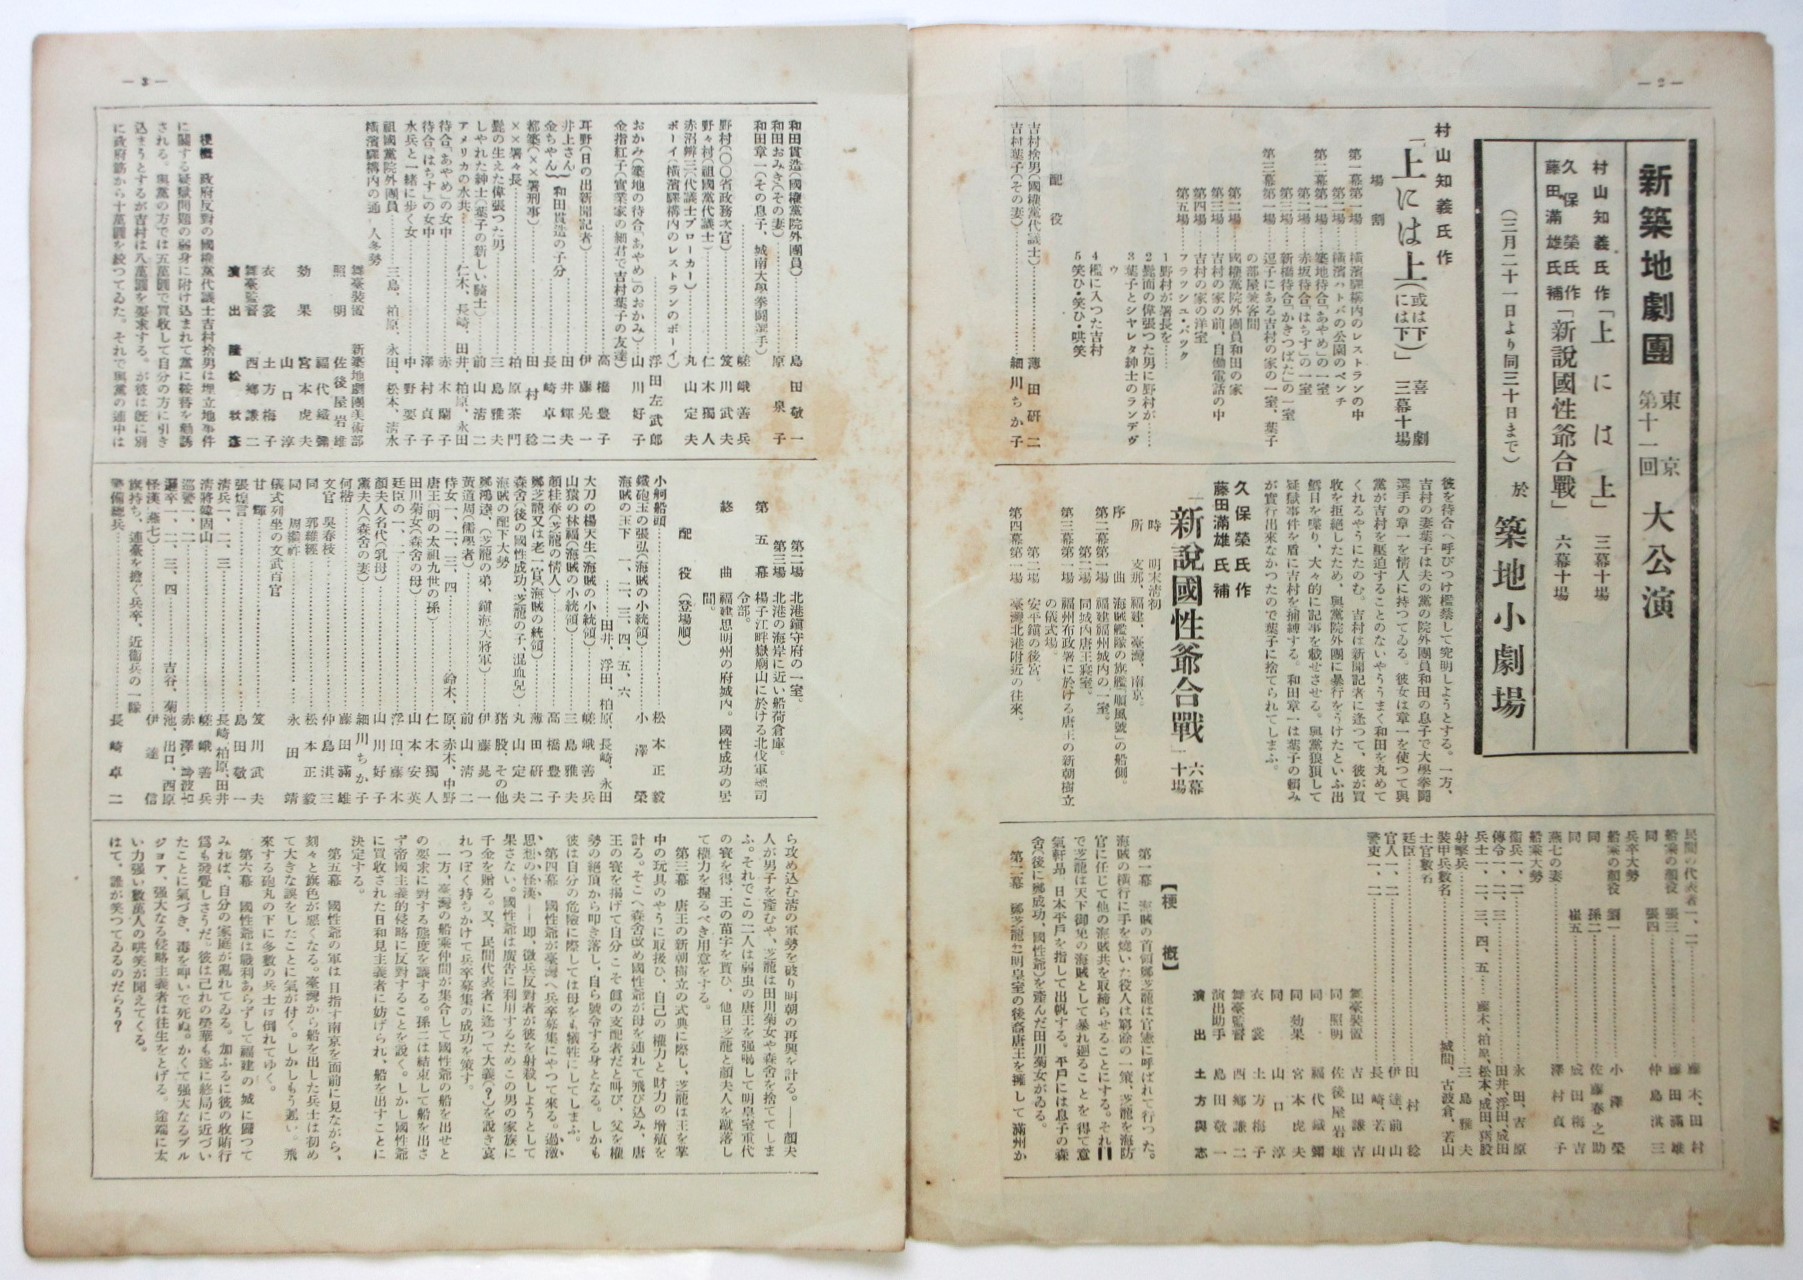 — 2 —
新築地劇團
東京
第十一回
大公演
村山知義氏作「上には上」三幕十場
久保榮氏作
藤田滿雄氏補
「新說國性爺合戰」六幕十場
(三月二十一日より同三十日まで)
於 築地小劇場
村山知義氏作
「上には上(或は下には下)」
喜劇
三幕十場
場割
第一幕第一場 橫濱驛構內のレストランの中
第二場 橫濱ハトバの公園のベンチ
第二幕第一場 築地待合「あやめ」の一室
第二場 赤坂待合「はちす」の一室
第三場 新橋待合「かきつばた」の一室
第三幕第一場 逗子にある吉村の家の一室、葉子の部屋兼客間
第二場 國權黨院外團員和田の家
第三場 吉村の家の前、自働電話の中
第四場 吉村の家の洋室
第五場 フラッシュ・バック
1 野村が署長を……
2 髭面の偉張つた男に野村が……
3 葉子とシヤレタ紳士のランデヴウ
4 檻に入つた吉村
5 笑ひ・笑ひ・哄笑
配役
吉村捨男(國權黨代議士)……薄田硏二
吉村葉子(その妻)……細川ちか子
彼を待合へ呼びつけ檻禁して究明しようとする。一方、
吉村の妻葉子は夫の黨の院外團員和田の息子で大學拳鬪
選手の章一を情人に持つてゐる。彼女は章一を使つて與
黨が吉村を驅迫することのないやううまく和田を丸めて
くれるやうにたのむ。吉村は新聞記者に逢つて、彼が買
收を拒絕したため、與黨院外團に暴行をうけたといふ出
鱈目を喋り、大々的に記事を載せさせる。與黨狼狽して
疑獄事件を盾に吉村を捕縛する。和田章一は葉子の賴み
が實行出來なかつたので葉子に捨てられてしまふ。
久保榮氏作
藤田滿雄氏補
「新說國性爺合戰」六幕十場
時 明末淸初
所 支那、福建、臺灣、南京。
序曲 海賊艦隊の旗艦「順風號」の船側。
第二幕第一場 福建福州城內の一室。
第二場 同城內唐王寢室。
第三幕第一場 福州布政署に於ける唐王の新朝樹立の儀式場。
第二場 安平鎭の後宮。
第四幕第一場 臺灣北港附近の往來。
民間の代表者一、二……藤木、田村
船乘の顏役 張三……藤田滿雄
同 張四……仲島淇三
兵卒大勢
船乘の顏役 劉一……小澤榮
同 孫二……佐藤春之助
同 崔五……成田梅吉
燕七の妻……澤村貞子
船乘大勢
衞兵一、二……永田、吉原
傳令一、二、三……田井、浮田、成田
兵士一、二、三、四、五……藤木、柏原、松本、成田、猪股
射擊兵……三島雅夫
裝甲兵數名……城間、古波倉、若山
士官數名
廷臣……田村稔
官人一、二……伊達、前山
警吏一、二……長崎、若山
舞臺裝置 吉田謙吉
同 照明 佐後屋岩雄
同 福代織彌
同 効果 宮本虎夫
同 山口淳
衣裳 土方梅子
舞臺監督 西鄉謙二
演出助手 島田敬一
演出 土方與志
【梗槪】
第一幕 海賊の首領鄭芝龍は官憲に呼ばれて行つた。
海賊の橫行に手を燒いた役人は窮餘の一策、芝龍を海防
官に任じて他の海賊共を取締らせることにする。それ
で芝龍は天下御免の海賊として暴れ廻ることを得て意
氣軒昂 日本平戶を指して出帆する。平戶には息子の森
舍(後に鄭成功、國性爺)を產んだ田川菊女がゐる。
第二幕 鄭芝龍は明皇室の後裔唐王を擁して滿州か
— 3 —
和田貫造(國權黨院外團員)……島田敬一
和田おみき(その妻)
和田章一(その息子、城南大學拳鬪選手)……原泉子
野村(〇〇省政務次官)……嵯峨善兵
野々村(祖國黨代議士)……笈川武夫
赤沼辨三(代議士ブローカー)……仁木獨人
ボーイ(橫濱驛構內のレストランのボーイ)……丸山定夫
浮田左武郞
おかみ(築地の待合「あやめ」のおかみ)……山川好子
金指紅子(實業家の細君で吉村葉子の友達)……高橋豐子
耳野(日の出新聞記者)……伊藤晃一
井上さん……田井輝夫
金ちゃん 和田貫造の子分……長崎卓二
都築(××署刑事)……田村稔
××署々長……柏原茶門
髭の生えた偉張つた男……三島雅夫
しやれた紳士(葉子の新しい騎士)……前山淸二
アメリカの水兵……仁木、長崎、田井、柏原、永田
待合「あやめ」の女中……赤木蘭子
待合「はちす」の女中……澤村貞子
水兵と一緖に步く女……中野要子
祖國黨院外團員……三島、柏原、永田、松本、淸水
橫濱驛構內の通行人多勢
舞臺裝置 新築地劇團美術部
照明 佐後屋岩雄
福代織彌
効果 宮本虎夫
山口淳
衣裳 土方梅子
舞臺監督 西鄉謙二
演出 隆松秋彥
梗槪 政府反對の國權黨代議士吉村捨男は埋立地事件
に關する疑獄問題の弱身に附け込まれて黨に鞍替を勸誘
される。與黨の方では五萬圓で買收して自分の方に引き
込まうとするが吉村は八萬圓を要求する。が彼は旣に別
に政府筋から十萬圓を絞つてゐた。それで與黨の連中は
第二場 北港鎭守府の一室。
第三場 北港の海岸に近い船荷倉庫。
第五幕 楊子江畔嶽廟山に於ける北伐軍總司令部。
終曲 福建思明州の府城內。國性成功の居間。
配役(登場順)
小舸船頭……松本正毅
鐵砲玉の張弘(海賊の小統領)……小澤榮
海賊の玉下 一、二、三、四、五、六
……田井、浮田、柏原、長崎、永田
大刀の楊天生(海賊の小統領)……嵯峨善兵
山猿の林福(海賊の小統領)……三島雅夫
顏桂春(芝龍の情人)……高橋豐子
鄭芝龍又は老一官(海賊の統領)……薄田硏二
森舍(後の國性成功、芝龍の子、混血兒)……丸山定夫
海賊の配下大勢……猪股、その他
鄭鴻逵、(芝龍の弟、鎭海大將軍)……伊藤晃一
黃道周(儒學者)……前山淸二
侍女一、二、三、四……鈴木、原、赤木、中野
唐王(明の太祖九世の孫)……仁木獨人
田川菊女(森舍の母)……山本安英
廷臣の一、二……浮田、藤木
顏夫人名代(乳母)……山川好子
董夫人(森舍の妻)……細川ちか子
何楷……藤田滿雄
文官 吳春枝……仲島淇三
同 郭維經……松本正毅
同 周繼祚……永田靖
儀式列坐の文武百官
甘輝……笈川武夫
張煌言……島田敬一
淸兵一、二、三……長崎、柏原、田井
淸將韓固山……嵯峨善兵
巡警一、二……赤澤、倉波
邏卒一、二、三、四……吉谷、菊池、出口、西原
怪漢(燕七)……伊達信
旗持ち、連臺を擔ぐ兵卒、近衞兵の一隊
警備總兵……長崎卓二
ら攻め込む淸の軍勢を破り明朝の再興を計る。——顏夫
人が男子を產むや、芝龍は田川菊女や森舍を捨ててしま
ふ。それでこの二人は弱虫の唐王を强喝して明皇室重代
の寶を得、王の苗字を貰ひ、他日芝龍と顏夫人を蹴落し
て權力を握るべき用意をする。
第三幕 唐王の新朝樹立の式典に際し、芝龍は王を掌
中の玩具のやうに取扱ひ、自己の權力と財力の增殖を
計る。そこへ森舍改め國性爺が母を連れて飛び込み、唐
王の寶を揭げて自分こそ眞の支配者だと叫び、父を權
勢の絕頂から叩き落し、自ら號令する身となる。しかも
彼は自分の危險に際しては母をも犧牲にしてしまふ。
第四幕 國性爺が臺灣へ兵卒募集にやつて來る。過激
思想の怪漢——卽、徵兵反對者が彼を射殺しようとして
果さない。國性爺は廣告に利用するためこの男の家族に
千金を贈る。又、民間代表者に逢つて大義(?)を說き哀
れつぽく持ちかけて兵卒募集の成功を策す。
一方、臺灣の船乘仲間が集合して國性爺の船を出せと
の要求に對する態度を議する。孫二は結束して船を出さ
ず帝國主義的侵略に反對することを說く。しかし國性爺
に買收された日和見主義者に妨げられ、船を出すことに
決定する。
第五幕 國性爺の軍は目指す南京を面前に見ながら、
刻々と旗色が惡くなる。臺灣から船を出した兵士は初め
て大きな誤をしたことに氣が付く。しかしもう遲い。飛
來する砲丸の下に多數の兵士は倒れてゆく。
第六幕 國性爺は戰利あらずして福建の城に歸つて
みれば、自分の家庭が亂れてゐる。加ふるに彼の收賄行
爲も發覺しさうだ。彼は己れの榮華も遂に終局に近づい
たことに氣づき、毒を呷いで死ぬ。かくて强大なるブル
ジヨア、强大なる侵略主義者は往生をとげる。途端に太
い力强い數萬人の哄笑が聞えてくる。
はて、誰が笑つてるのだらう?